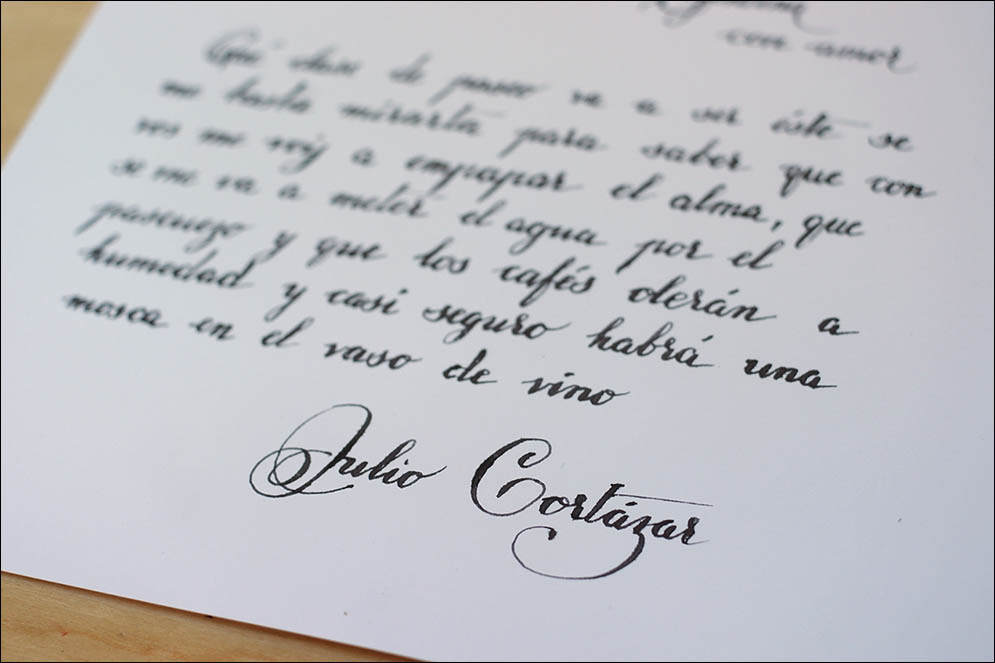 con amor
Qué clase de paseo va a ser éste se
me basta mirarta para saber que con
vos me voy a empapar el alma, que
se me va a meter el agua por el
pascuezo y que los cafés olerán a
humedad y casi seguro habrá una
mosca en el vaso de vino
Julio Cortázar